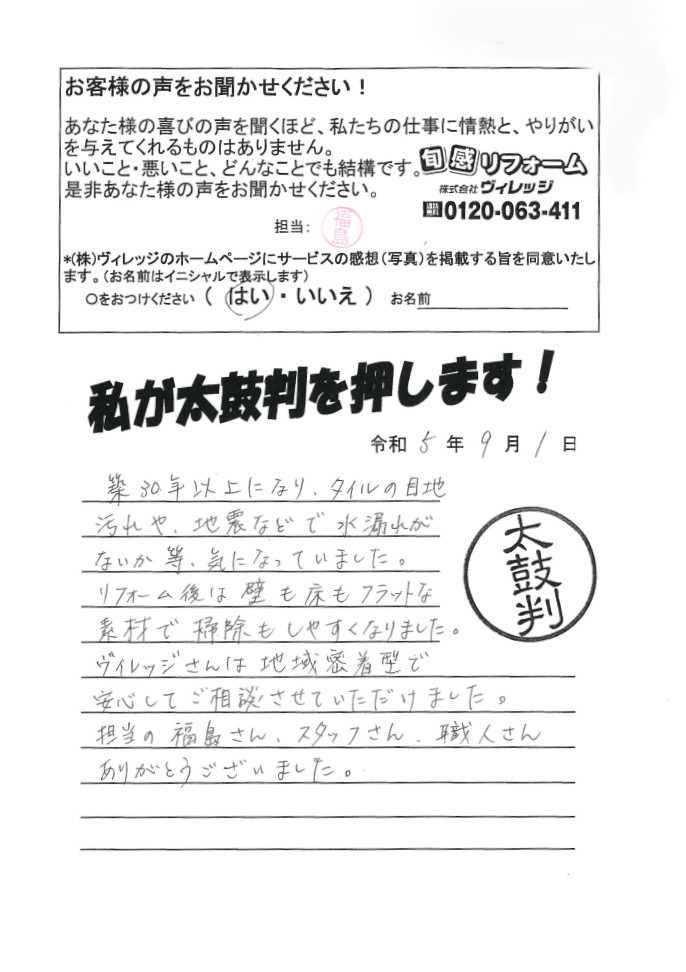 お客様の声をお聞かせください！
あなた様の喜びの声を聞くほど、私たちの仕事に情熱と、やりがい
を与えてくれるものはありません。
いいこと・悪いこと、どんなことでも結構です。
是非あなた様の声をお聞かせください。
旬感リフォーム
株式会社ヴィレッジ
0120-063-411
担当：福島
*(株)ヴィレッジのホームページにサービスの感想（写真）を掲載する旨を同意いたし
ます。（お名前はイニシャルで表示します）
○をおつけください（ はい ・ いいえ ） お名前
私が太鼓判を押します！
令和 5 年 9 月 1 日
築30年以上になり、タイルの目地
汚れや、地震などで水漏れが
ないか等、気になっていました。
リフォーム後は壁も床もフラットな
素材で掃除もしやすくなりました。
ヴィレッジさんは地域密着型で
安心してご相談させていただけました。
担当の福島さん、スタッフさん、職人さん
ありがとうございました。
太鼓判